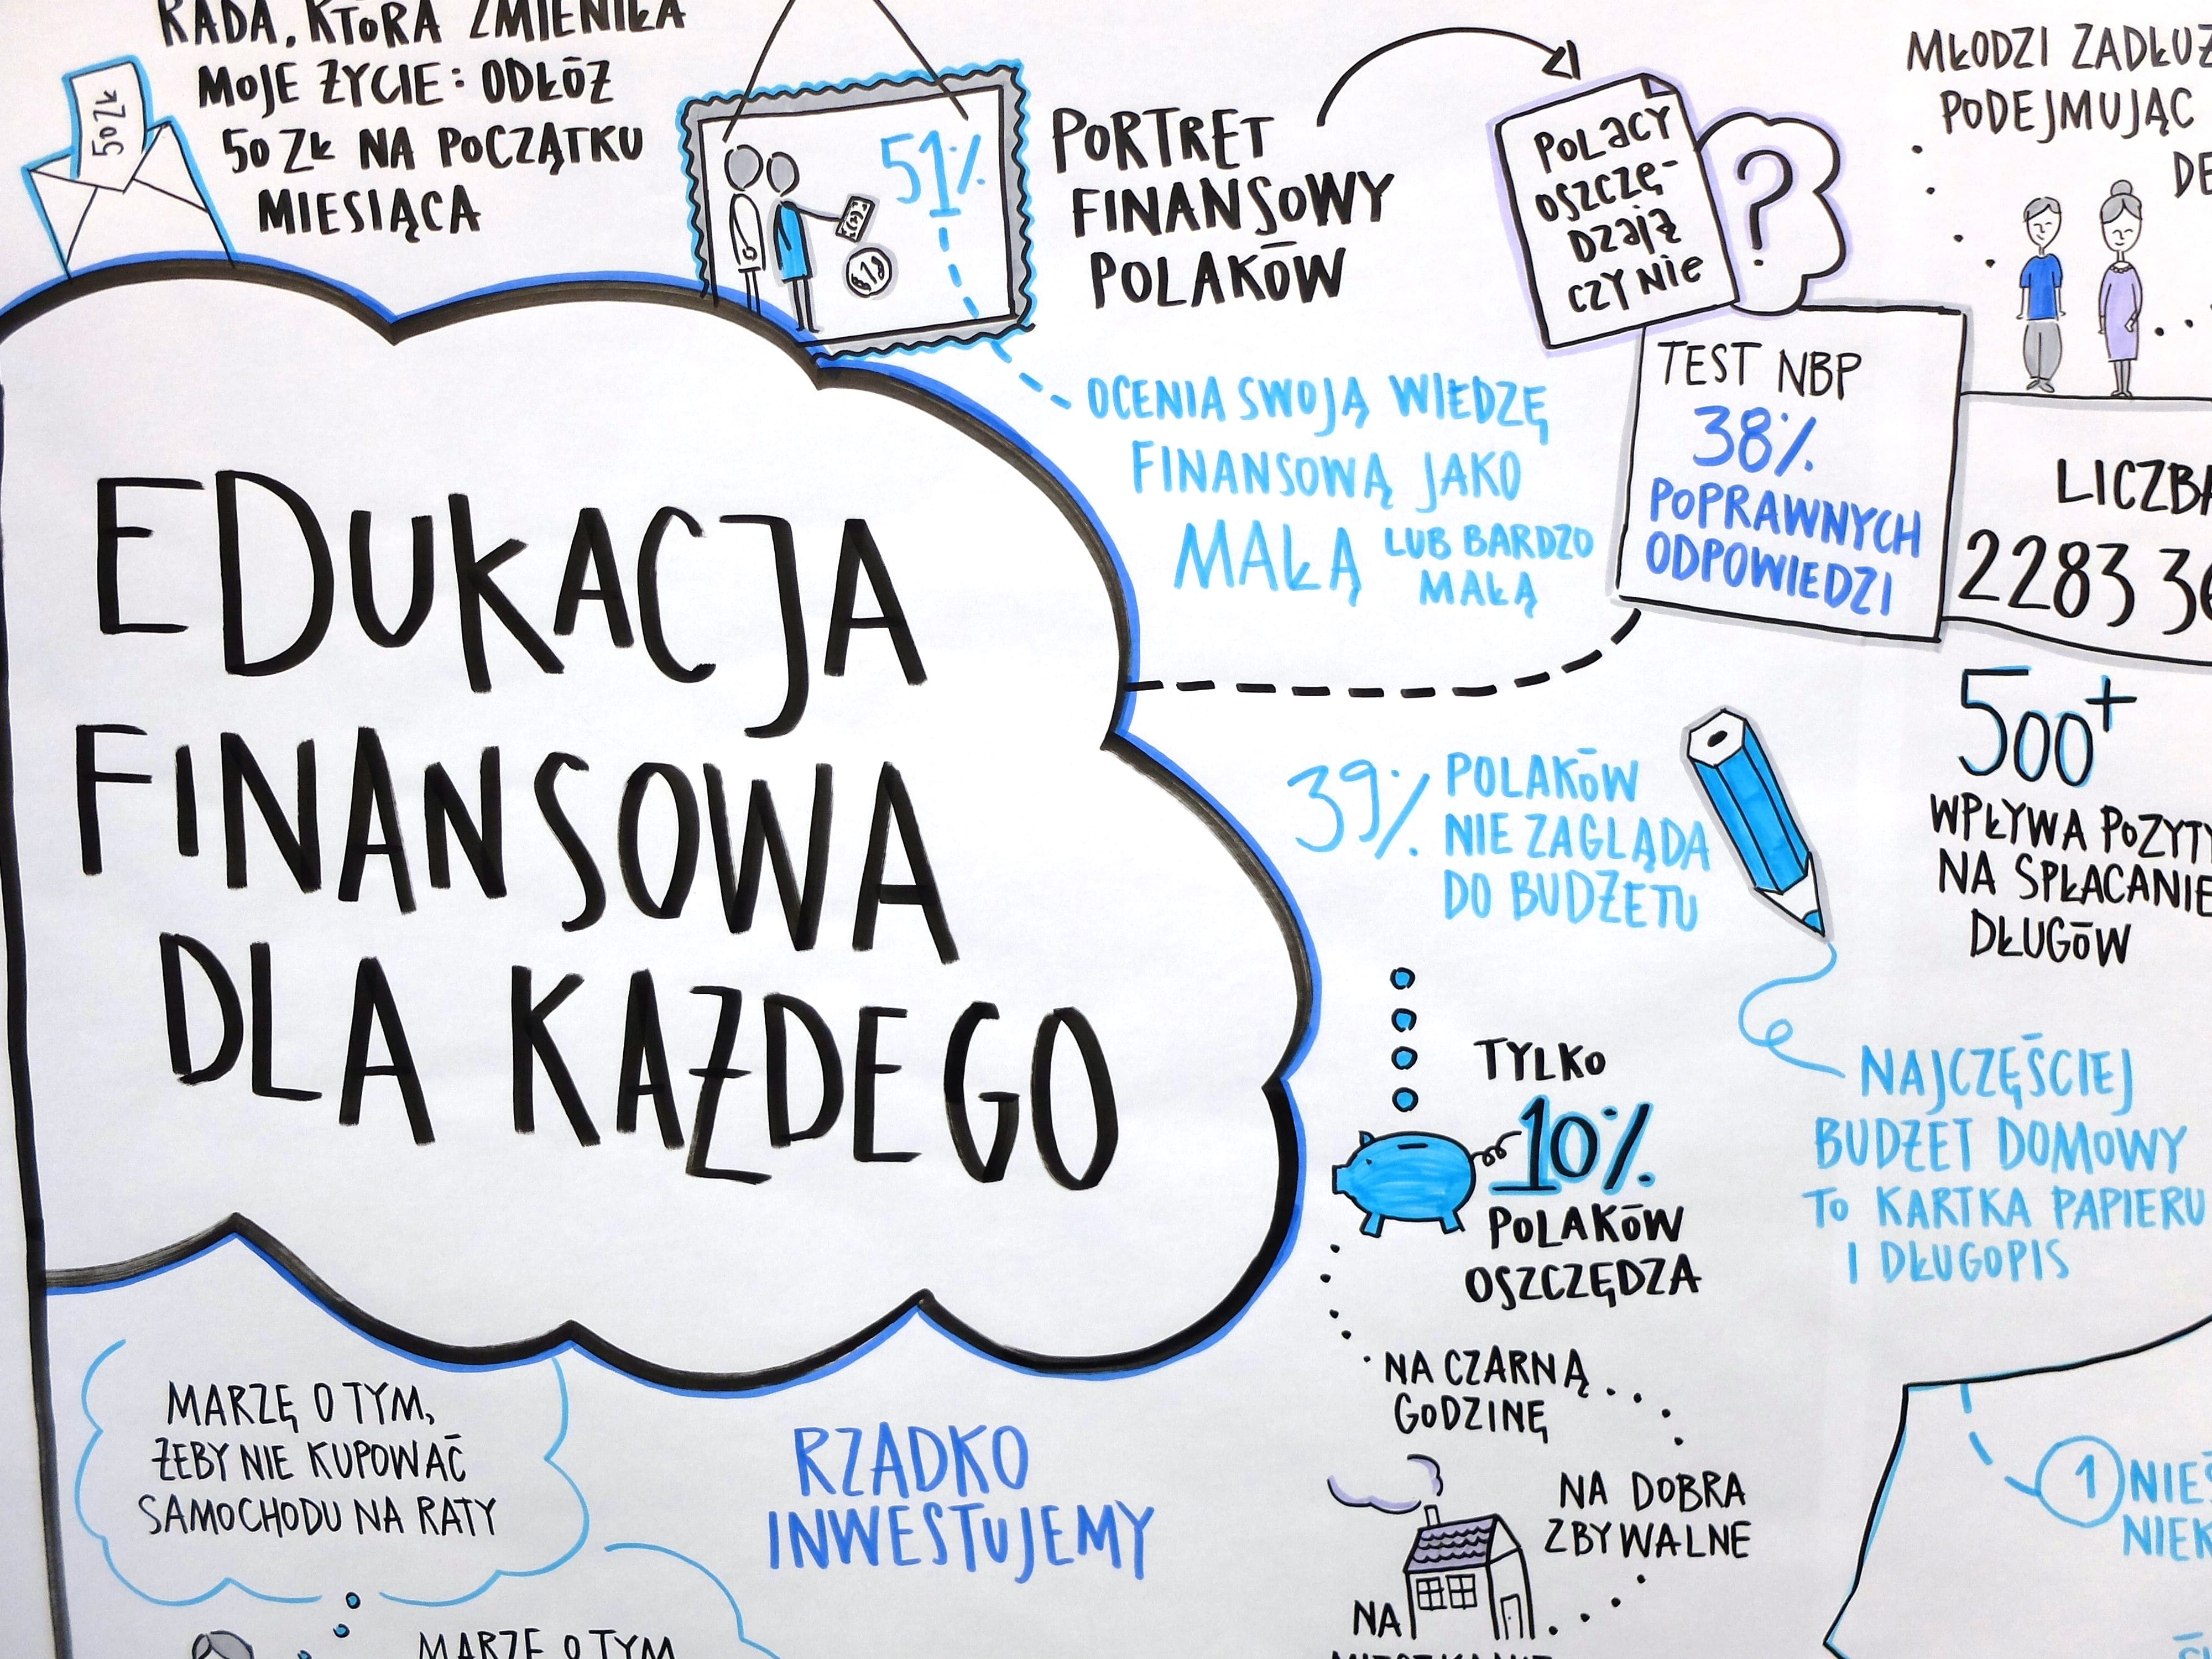 RADA, KTÓRA ZMIENIŁA
MOJE ŻYCIE: ODŁÓŻ
50 ZŁ NA POCZĄTKU
MIESIĄCA
50 ZŁ
51%
PORTRET
FINANSOWY
POLAKÓW
OCENIA SWOJĄ WIEDZĘ
FINANSOWĄ JAKO
MAŁĄ LUB BARDZO
MAŁĄ
POLACY
OSZCZĘ-
DZAJĄ
CZY NIE
?
TEST NBP
38%
POPRAWNYCH
ODPOWIEDZI
MŁODZI
PODEJMUJĄC
LICZBA
2283
500+
WPŁYWA
NA SPŁACANIE
DŁUGÓW
EDUKACJA
FINANSOWA
DLA KAŻDEGO
39% POLAKÓW
NIE ZAGLĄDA
DO BUDŻETU
NAJCZĘŚCIEJ
BUDŻET DOMOWY
TO KARTKA PAPIERU
I DŁUGOPIS
TYLKO
10%
POLAKÓW
OSZCZĘDZA
NA CZARNĄ
GODZINĘ
NA DOBRA
ZBYWALNE
NA
MIESZKANIE
MARZĘ O TYM,
ŻEBY NIE KUPOWAĆ
SAMOCHODU NA RATY
MARZĘ O TYM
RZADKO
INWESTUJEMY
1